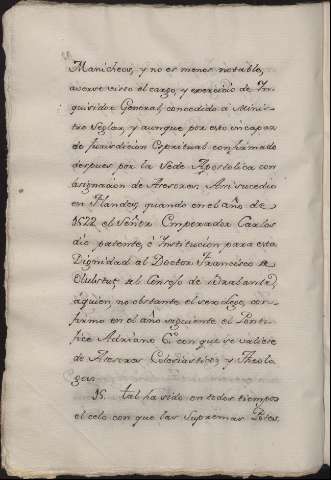 Manicheos, y no es menos notable,
averse visto el cargo, y exercicio de In-
quisidor General, concedido á Minis-
tro Seglar, y aunque por esto incapaz
de Jurisdicion Espiritual confirmado
despues por la Sede Apostolica con
asignacion de Asesores. Asi sucedio
en Flandes, quando en el año de
1522 el Señor Emperador Carlos
dio patente, é Institucion para esta
Dignidad al Doctor Francisco de
Hulstus, del Consejo de Brabante,
á quien, no obstante el ser Lego, con-
firmo en el año siguiente el Ponti-
fice Adriano 6º con que se valiese
de Asesores Eclesiasticos, y Theolo-
gos.
15. Tal ha sido en todos tiempos
el celo con que las Supremas Potes